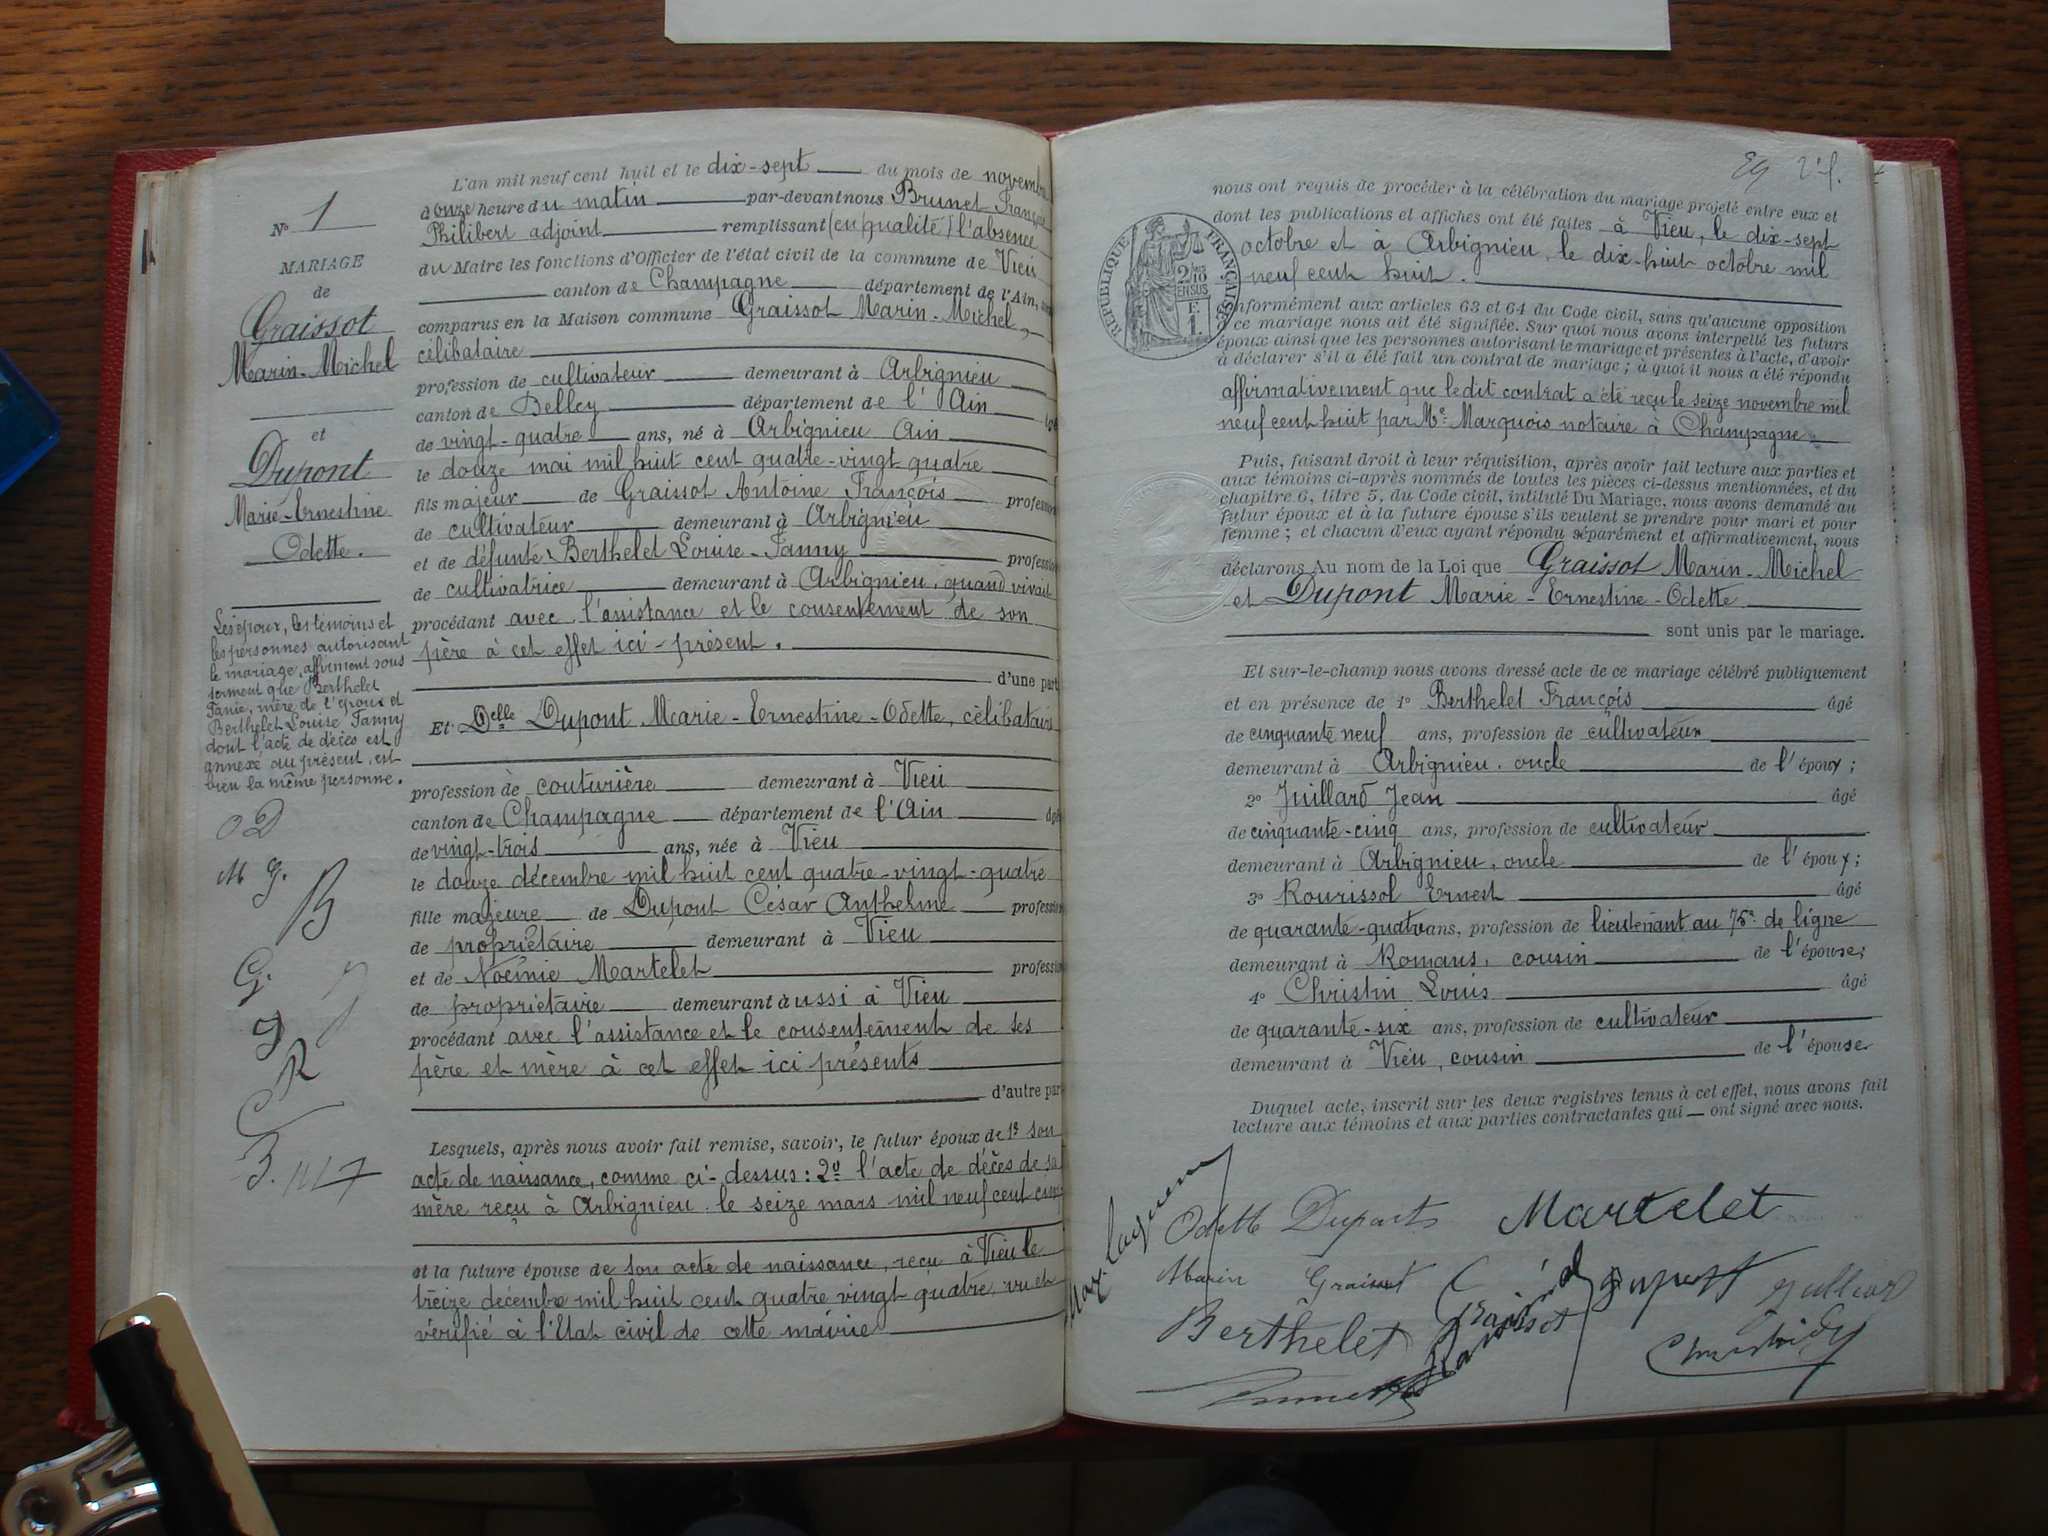 N° 1
MARIAGE
de
Graissot
Marin-Michel
et
Dupont
Marie-Ernestine
Odette.
Les époux, les témoins et
les personnes autorisant
le mariage, affirment sous
serment que Berthelet
Fanie, mère de l'époux et
Berthelet Louise Fanny
dont l'acte de décès est
annexé au présent, est
bien la même personne.
O D
M G.
B
G.
J
R
C
L'an mil neuf cent huit et le dix-sept du mois de novembre
à onze heure du matin par-devant nous Brunet François
Philibert adjoint remplissant (en qualité) l'absence
du Maire les fonctions d'Officier de l'état civil de la commune de Vieu
canton de Champagne département de l'Ain,
comparus en la Maison commune Graissot Marin-Michel,
célibataire
profession de cultivateur demeurant à Arbignieu
canton de Belley département de l'Ain
de vingt-quatre ans, né à Arbignieu Ain
le douze mai mil huit cent quatre-vingt quatre
fils majeur de Graissot Antoine François profession
de cultivateur demeurant à Arbignieu
et de défunte Berthelet Louise-Fanny profession
de cultivatrice demeurant à Arbignieu, quand vivait
procédant avec l'assistance et le consentement de son
père à cet effet ici-présent.
d'une part
Et Delle Dupont Marie-Ernestine-Odette, célibataire
profession de couturière demeurant à Vieu
canton de Champagne département de l'Ain
de vingt-trois ans, née à Vieu
le douze décembre mil huit cent quatre-vingt-quatre
fille majeure de Dupont César Anthelme profession
de propriétaire demeurant à Vieu
et de Noémie Martelet profession
de propriétaire demeurant à ussi à Vieu
procédant avec l'assistance et le consentement de ses
père et mère à cet effet ici présents
d'autre part
Lesquels, après nous avoir fait remise, savoir, le futur époux de 1º son
acte de naissance, comme ci-dessus: 2º l'acte de décès de sa
mère reçu à Arbignieu le seize mars mil neuf cent cinq
et la future épouse de son acte de naissance, reçu à Vieu le
treize décembre mil huit cent quatre vingt quatre, vu et
vérifié à l'Etat civil de cette mairie
nous ont requis de procéder à la célébration du mariage projeté entre eux et
dont les publications et affiches ont été faites à Vieu, le dix-sept
octobre et à Arbignieu, le dix-huit octobre mil
neuf cent huit.
RÉPUBLIQUE FRANÇAISE
2/10 EN SUS
F. 1.
conformément aux articles 63 et 64 du Code civil, sans qu'aucune opposition
à ce mariage nous ait été signifiée. Sur quoi nous avons interpellé les futurs
époux ainsi que les personnes autorisant le mariage et présentes à l'acte, d'avoir
à déclarer s'il a été fait un contrat de mariage ; à quoi il nous a été répondu
affirmativement que ledit contrat a été reçu le seize novembre mil
neuf cent huit par Me. Marquois notaire à Champagne.
Puis, faisant droit à leur réquisition, après avoir fait lecture aux parties et
aux témoins ci-après nommés de toutes les pièces ci-dessus mentionnées, et du
chapitre 6, titre 5, du Code civil, intitulé Du Mariage, nous avons demandé au
futur époux et à la future épouse s'ils veulent se prendre pour mari et pour
femme ; et chacun d'eux ayant répondu séparément et affirmativement, nous
déclarons Au nom de la Loi que Graissot Marin-Michel
et Dupont Marie-Ernestine-Odette
sont unis par le mariage.
Et sur-le-champ nous avons dressé acte de ce mariage célébré publiquement
et en présence de 1º Berthelet François âgé
de cinquante neuf ans, profession de cultivateur
demeurant à Arbignieu. oncle de l'époux ;
2º Juillard Jean âgé
de cinquante-cinq ans, profession de cultivateur
demeurant à Arbignieu, oncle de l'époux ;
3º Rourissol Ernest âgé
de quarante-quatre ans, profession de lieutenant au 75e. de ligne
demeurant à Romans, cousin de l'épouse;
4º Christin Louis âgé
de quarante-six ans, profession de cultivateur
demeurant à Vieu, cousin de l'épouse
Duquel acte, inscrit sur les deux registres tenus à cet effet, nous avons fait
lecture aux témoins et aux parties contractantes qui ont signé avec nous.
Odette Dupont Martelet
Marin Graissot
Berthelet Graissot